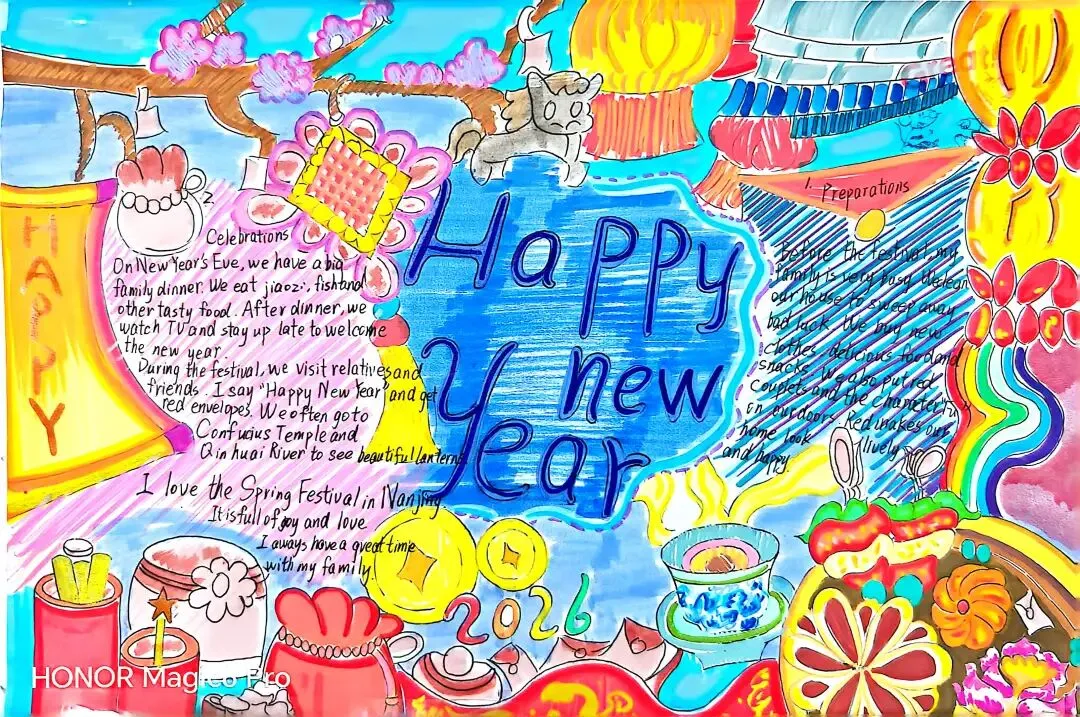 HAPPY
Happy
new
Year
2026
1. Preparations
Before the festival, my
family is very busy. We clean
our house to sweep away
bad luck. We buy new
clothes, delicious food and
snacks. We also put red
Couplets and the character "Fu"
on outdoors. Red makes our
home look lively
and happy.
2.
Celebrations
On New Year's Eve, we have a big
family dinner. We eat jiaozi, fish and
other tasty food. After dinner, we
watch TV and stay up late to welcome
the new year.
During the festival, we visit relatives and
friends. I say "Happy New Year" and get
red envelopes. We often go to
Confucius Temple and
Qinhuai River to see beautiful lanterns.
I love the Spring Festival in Nanjing
It is full of joy and love
I aways have a great time
with my family.
HONOR Magic6 Pro